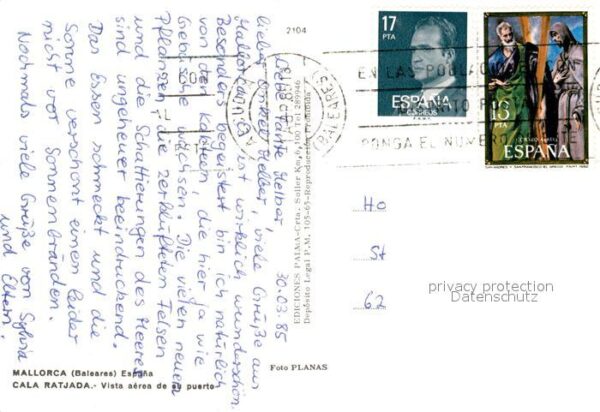 30.03.85
Liebe Tante Helbor,
lieber Onkel Helbor, viele Grüße aus
Mallorca. Es ist wirklich wunderschön.
Besonders begeistert bin ich natürlich
von den Kakteen, die hier ja wie
Gebüsche wachsen. Die vielen neuen
Pflanzen, die zerklüfteten Felsen
und die Schattierungen des Meeres
sind ungeheuer beeindruckend.
Das Essen schmeckt und die
Sonne verschont einen leider
nicht vor Sonnenbränden.
Nochmals viele Grüße von Sylvia
und Eltern.
2104
EDICIONES PALMA-Crta. Soller Km, 6,100 Tel 289946
Depósito Legal P.M. 105-65-Reproducción Prohibida
Foto PLANAS
MALLORCA (Baleares) España
CALA RATJADA.- Vista aérea de su puerto
17
PTA
ESPAÑA
16
PTA
ESPAÑA
EN LAS POBLAC
PONGA EL NUMERO
Ho
St
62
privacy protection
Datenschutz